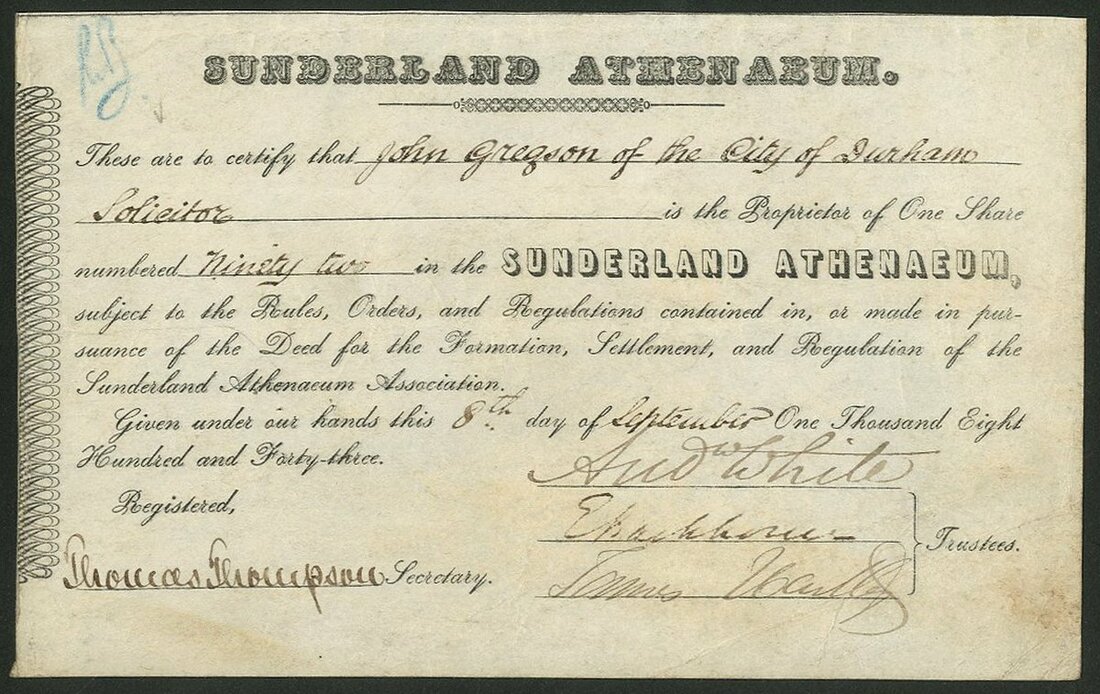 SUNDERLAND ATHENAEUM.
These are to certify that John Gregson of the City of Durham
Solicitor is the Proprietor of One Share
numbered Ninety two in the SUNDERLAND ATHENAEUM,
subject to the Rules, Orders, and Regulations contained in, or made in pur-
suance of the Deed for the Formation, Settlement, and Regulation of the
Sunderland Athenaeum Association.
Given under our hands this 8th day of September One Thousand Eight
Hundred and Forty-three.
Andw White
Registered,
Trustees.
Thomas Thompson Secretary.
James Hartley